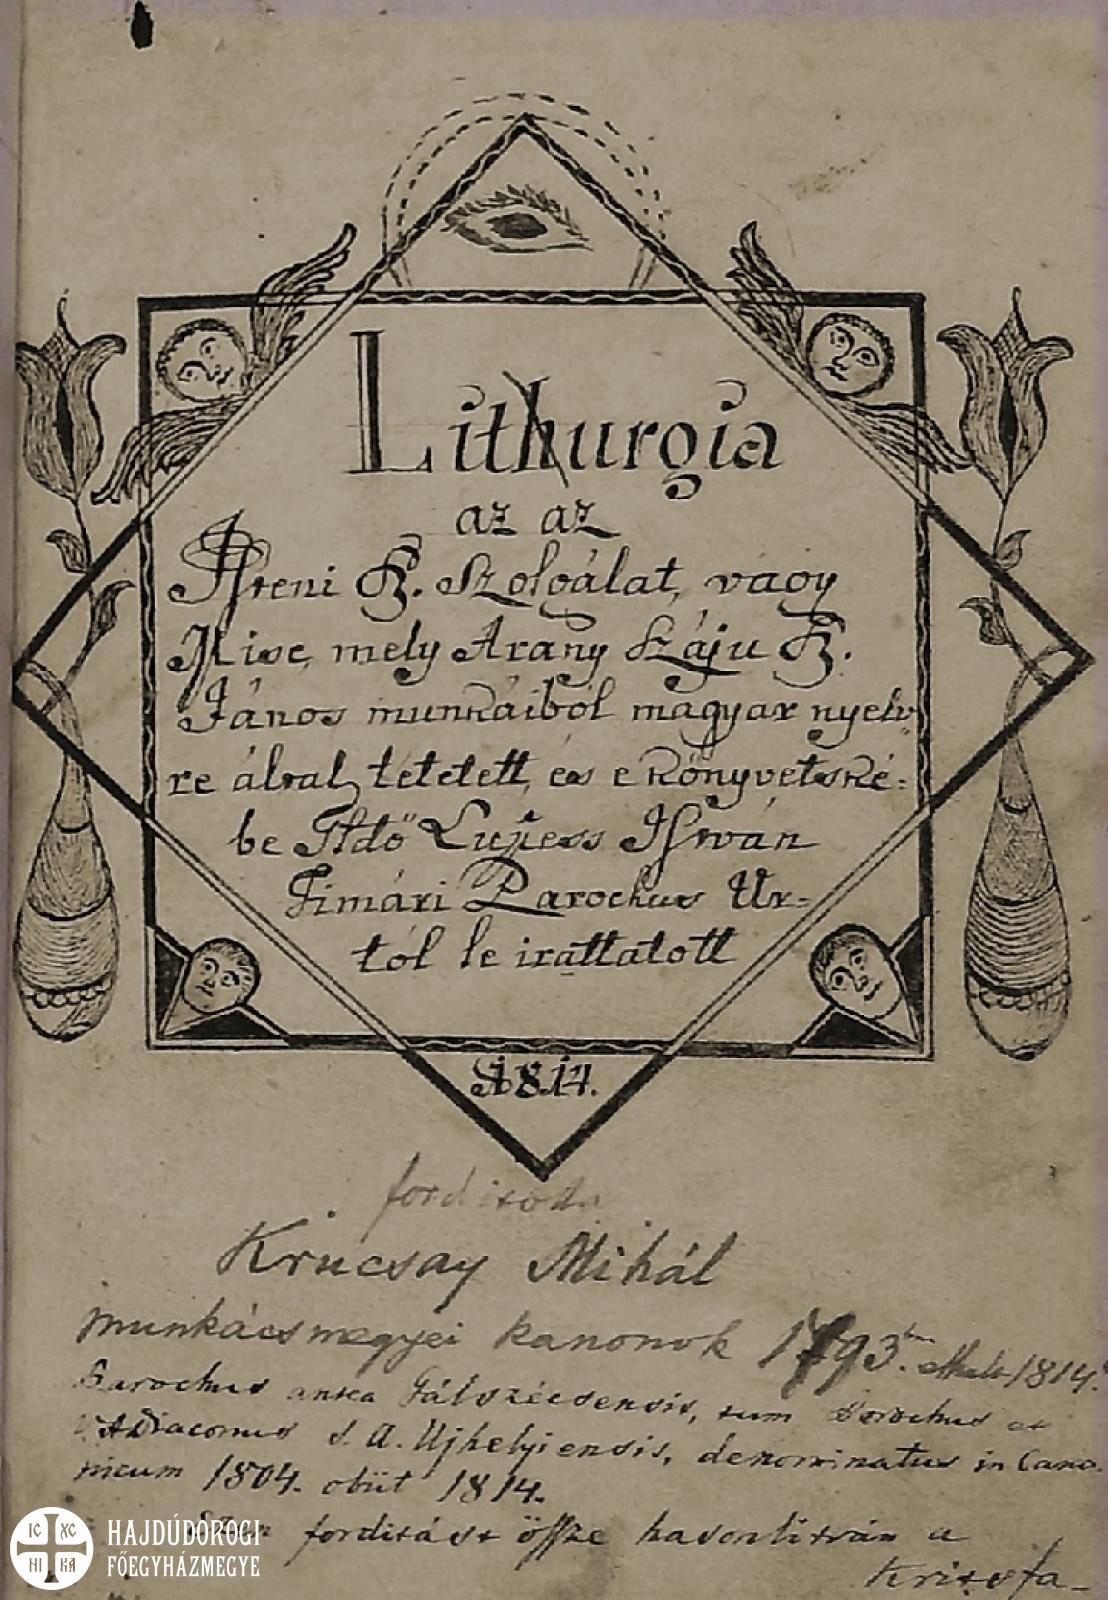 Lithurgia
az az
Isteni Sz. Szolgálat, vagy
Mise, mely Arany Száju Sz.
János munkáiból magyar nyelv
re által tétetett, és e könyvetské-
be Iidő Lupess István
Timári Parochus Ur-
tól le irattatott
1814.
fordította
Krucsay Mihál
munkácsmegyei kanonok 1793. meghalt 1814.
Parochus antea Gálszécsensis, tum Parochus et
V.ADiaconus S. A. Ujhelyiensis, denominatus in Cano-
nicum 1804. obiit 1814.
Ezen fordítást össze hasonlitván a
Kritsfa-
HAJDÚDOROGI
FŐEGYHÁZMEGYE
IC XC
NI KA